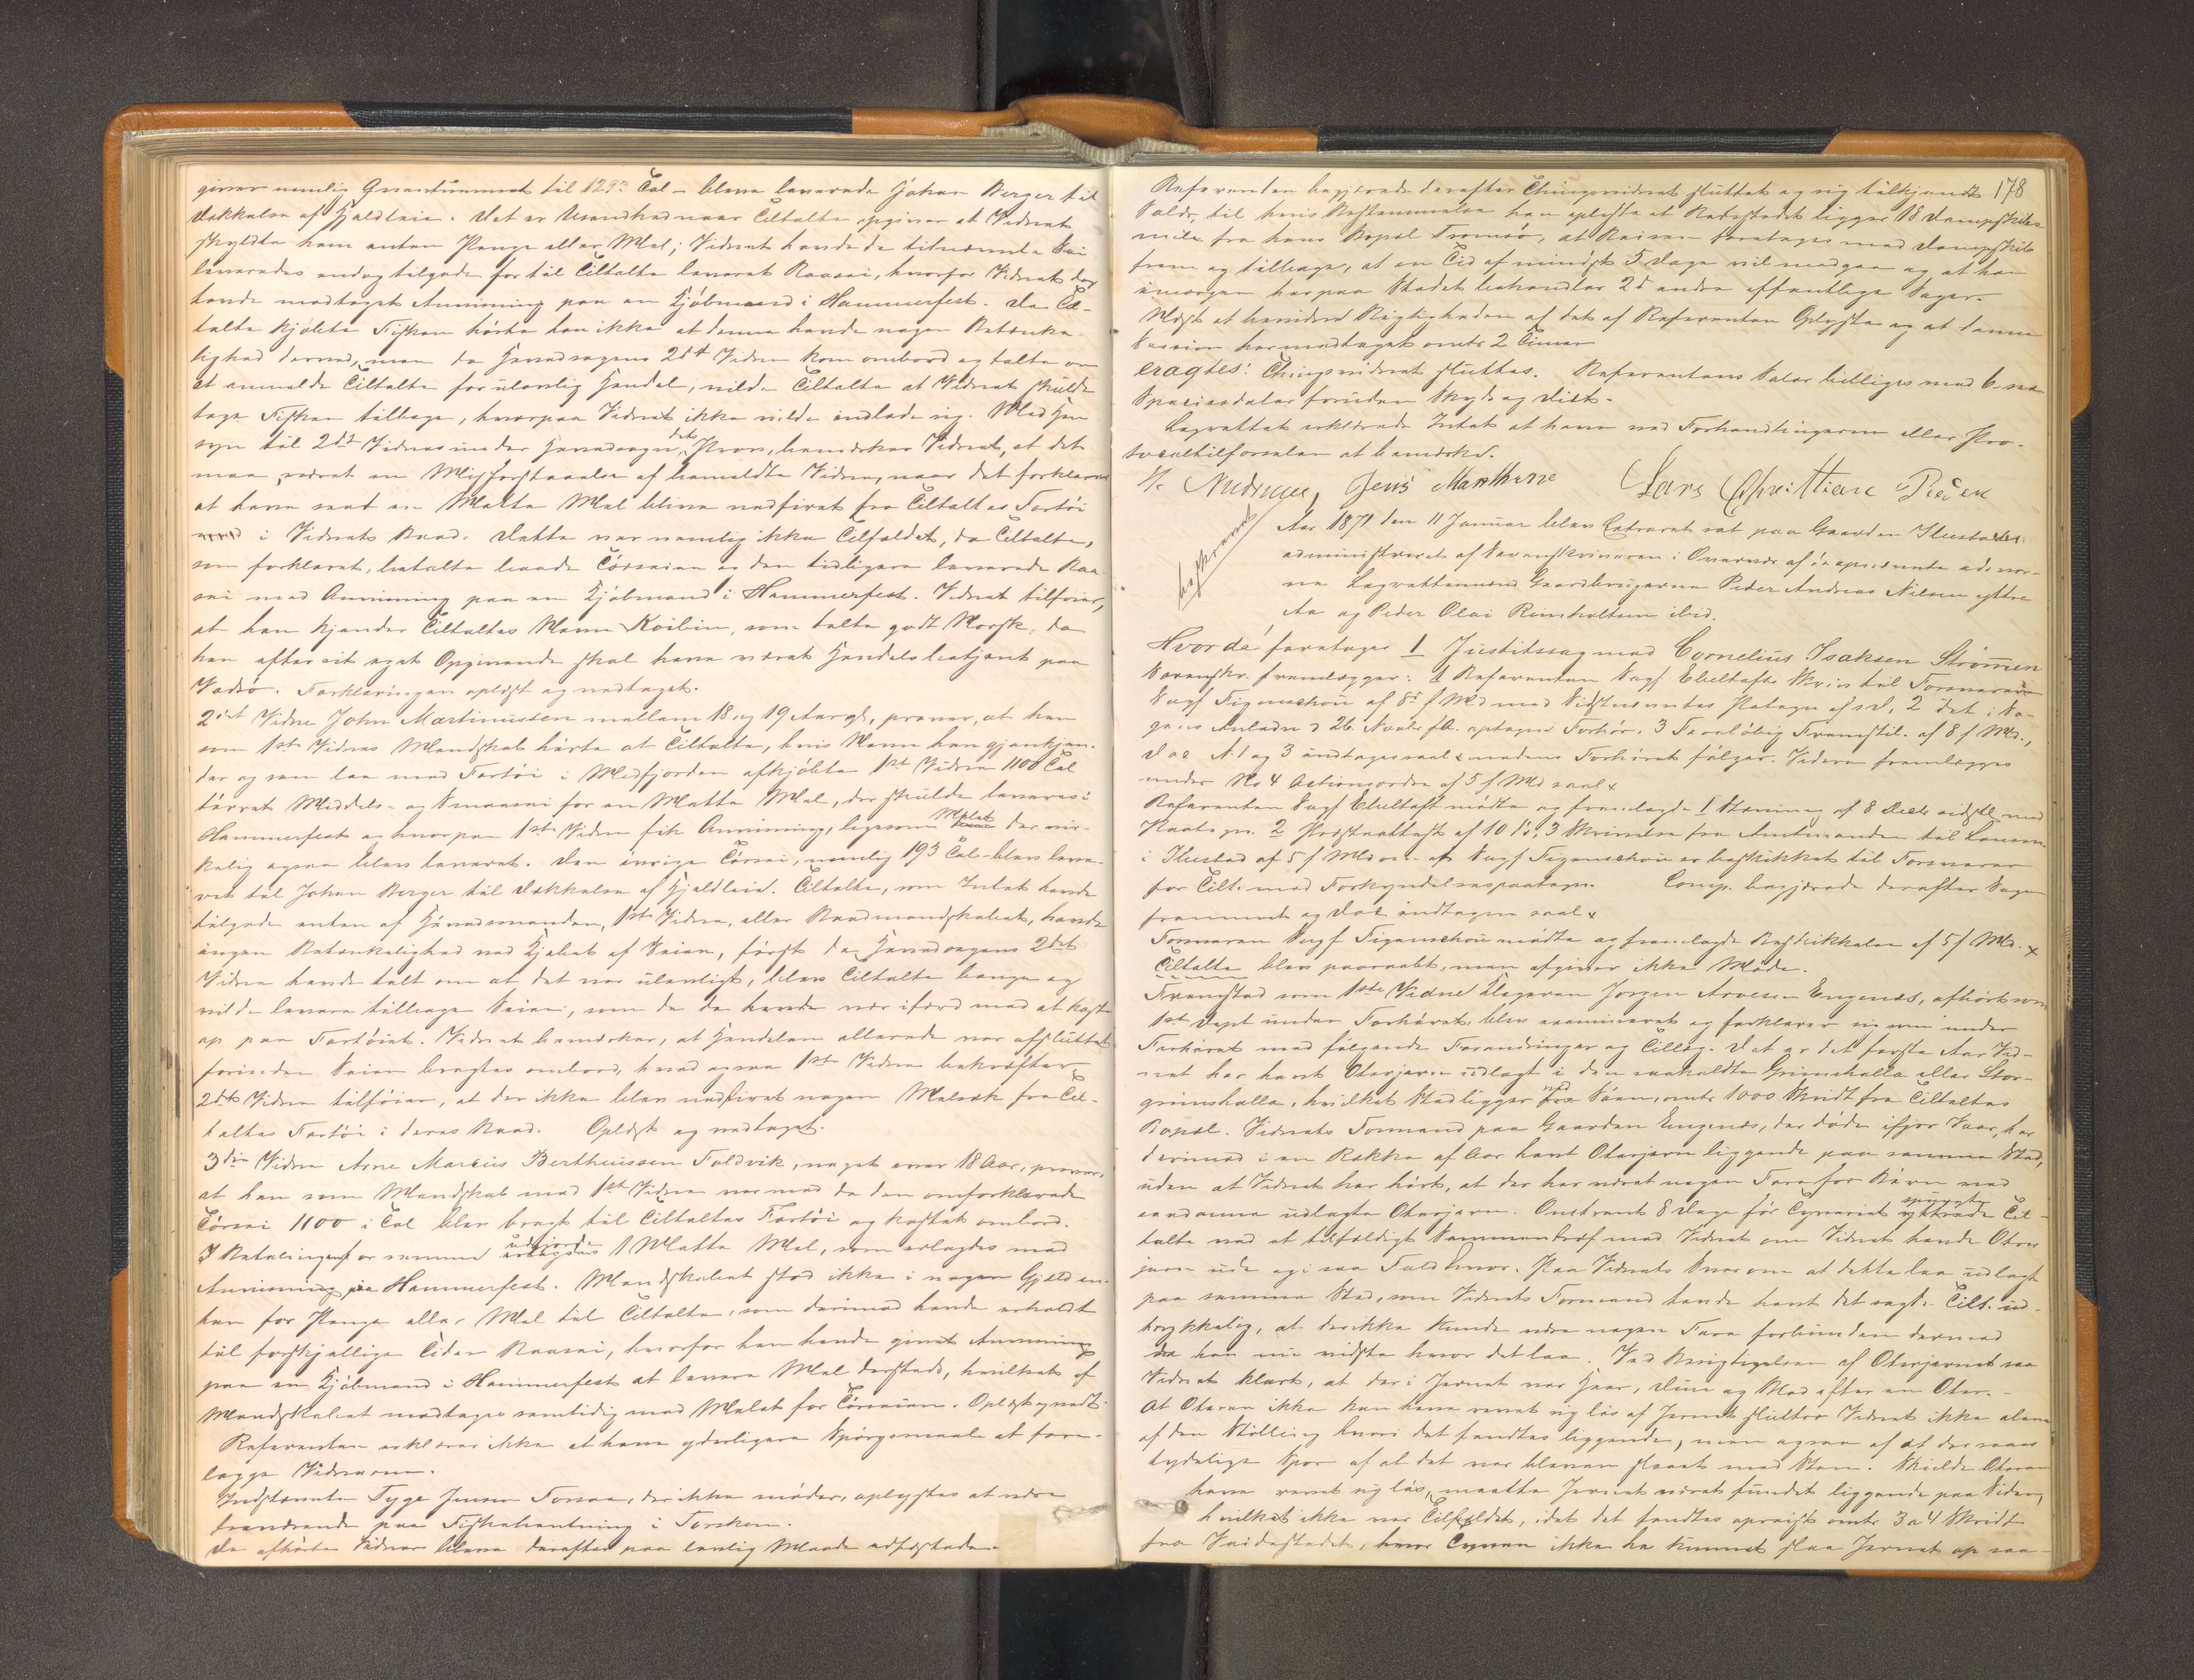 giver nemlig Qvantummet til 1293 Tal – bleve leverede Johan Berger til
Dækkelse af Gjeldleie. Det er Usandhed naar Tiltalte opgiver at Vidnet
skyldte ham enten Penge eller Mel; Vidnet havde da titnævnte Sei
leveredes endog tilgode for til Tiltalte leveret Raasei, hvorfor Vidnet dog
havde modtaget Anvisning paa en Kjøbmand i Hammerfest. Da Til-
talte kjøbte Fisken hørte han ikke at denne havde nogen Betænke-
lighed derved, men da Havesagens 2det Vidne kom ombord og talte om
at anmelde Tiltalte for ulovlig Handel, vilde Tiltalte at Vidnet skulde
tage Fisken tilbage, hvorpaa Vidnet ikke vilde indlade sig. Med Hen-
syn til 2det Vidnes under Havesagen dets Prov, bemærker Vidnet, at det
maa været en Misforstaaelse af bemeldte Vidne, naar det forklarer
at have seet en Matte Mel blive nedfiret fra Tiltaltes Fartøi
i Vidnets Baad. Dette var nemlig ikke Tilfældet, da Tiltalte,
som forklaret, betalte baade Tørseien og den tidligere leverede Raa-
sei med Anvisning paa en Kjøbmand i Hammerfest. Vidnet tilføier,
at han kjender Tiltaltes Navn Koibin, som talte godt Norsk, da
han efter eit eget Opgivende skal have været Handelsbetjent paa
Vadsø. Forklaringen oplæst og vedtaget.
2det Vidne John Martinussen mellem 18 og 19 Aar gl., prover, at han
som 1ste Vidnes Mandskab hørte at Tiltalte, hvis Navn han gjenkjen-
der og som laa med Fartøi i Medfjorden afkjøbte 1ste Vidne 1100 Tal
tørret Middels- og Smaasei for en Matte Mel, der skulde leveres i
Hammerfest og hvorpaa 1ste Vidne fik Anvisning, ligesom Melet der vir-
kelig ogsaa blev leveret. Den øvrige Tørsei, nemlig 193 Tal – blev leve-
ret til Johan Berger til Dækkelse af Gjeldleie. Tiltalte, som Intet havde
tilgode enten af Høvedsmanden, 1ste Vidne, eller Baadmandskabet, havde
ingen Betænkelighed ved Kjøbet af Seien, først da Havesagens 2det
Vidne havde talt om at det var ulovligt, blev Tiltalte bange og
vilde levere tilbage Seien, som da de havde var ifærd med at kaste
op paa Fartøiet. Vidnet bemærker, at Handelen allerede var afsluttet
førinden Seien bragtes ombord, hvad ogsaa 1ste Vidne bekræfter.
2det Vidne tilføier, at der ikke blev nedfiret nogen Melsæk fra Til-
taltes Fartøi i deres Baad. Oplæst og vedtaget.
3die Vidne Arne Marcius Bertheussen Foldvik, noget over 18 Aar, prover,
at han som Mandskab med 1ste Vidne var med da den omforklarede
Tørsei 1100 i Tal blev bragt til Tiltaltes Fartøi og kastet ombord.
I Betalingen for samme udgjorde 1 Matte Mel, som erlagdes med
Anvisning paa Hammerfest. Mandskabet stod ikke i nogen Gjeld en-
ten for Penge eller Mel til Tiltalte, som derimod havde erholdt
til forskjellige Tider Raasei, hvorfor han havde givet Anvisning
paa en Kjøbmand i Hammerfest at levere Mel dersteds, hvilket af
Mandskabet modtoges samtidig med Melet for Tørseien. Oplæst og vedt.
Referenten erklærer ikke at have yderligere Spørgsmaale at fore-
lægge Vidnerne.
Indstævnte Tyge Jensen Forsaa, der ikke møder, oplystes at være
fraværende paa Fiskehentning i Torsken.
De afhørte Vidner bleve derefter paa lovlig Maade edfæstede.
178
Referenten begjærede derefter Thingsvidnet sluttet og sig tilkjendt
Salær, til hvis Bestemmelse han oplyste at Rettestedet ligger 18 Dampskibs-
mile fra hans Bopæl Tromsø, at Reisen foretages med Dampskib
frem og tilbage, at en Tid af mindst 5 Dage vil medgaa og at han
imorgen her paa Stedet behandler 2de andre offentlige Sager.
Næst at bevidne Rigtigheden af det af Referenten Oplyste og at denne
Session har medtaget omtr 2 Timer
eragtes: Thingsvidnet sluttes. Referentens Salær billiges med 6 –
Speciesdaler foruden Skyds og Diæt.
Lagrettet erklærede Intet at have ved Forhandlingerne eller Pro-
tocoltilførselen at bemærke.
Jens Marthinne Lars Christian Peder
Aar 1871 den 11 Januar blev Extraret sat paa Gaarden Ilustad
administreret af Sorenskriveren i Overvær af de opnævnte edsvor-
ne Lagrettemænd Gaardbrugerne Peder Andreas Nilsen yttre
Aa og Peder Olai Reinholtsen ibid.
Hvorda foretages 1 Justitssag mod Cornelius Isaksen Strømmen
Sorenskr. fremlægger: 1 Referenten Sagf Ebeltofts Skriv. til Forsvareren
Sagf Figenschou af 8de f Md med Sidstnævntes Paategn af s. D, 2 det i Sa-
gens Anledn d 26 Novbr f.A. optagne Forhør. 3 Foreløbig Fremstil. af 8 f Md.,
Doc N. 1 og 3 indtages saal. medens Forhøret følger. Videre fremlægges
under No 4 Actionsordre af 5 f. Md saal.
Referenten Sagf Ebeltoft mødte og fremlagde 1 Stævning af 8 Decbr sidstl. med
Paategn. 2 Postattest af 10 ds, 3 Skrivelse fra Amtmanden til Lensm.
i Ilustad af 5 f. Md om at Sagf Figenschou er beskikket til Forsvarer
for Tilt. med Forkyndelsespaategn. Comp. begjærede derefter Sagen
fremmet og Doc indtagne saal.
Forsvaren Sagf Figenschou mødte og fremlagde Beskikkelse af 5 f Md.
Tiltalte blev paaraabt, men afgiver ikke Møde.
Fremstod som 1ste Vidne Klageren Jørgen Arvesen Engenes, afhørt som
1ste Dept under Forhøret, blev examineret og forklarer sig som under
Forhøret med følgende Forandringer og Tillæg. Det er det første Aar Vid-
net har havt Oterjern udlagt i den saakaldte Grimshalla eller Stor-
grimshalla, hvilket Sted ligger ved Søen, omtr 1000 Skridt fra Tiltaltes
Bopæl. Vidnets Formand paa Gaarden Engenes, der døde ifjor Vaar, har
derimod i en Række af Aar havt Oterjern liggende paa samme Sted,
uden at Vidnet har hørt, at der har været nogen Fare for Børn ved
saadanne udlagte Oterjern. Omtrent 8 Dage før Tyveriet spurgte Til-
talte ved et tilfældigt Sammentræf med Vidnet om Vidnet havde Oter-
jern ude og i saa Fald hvor. Paa Vidnets Svar om at dette laa udlagt
paa samme Sted, som Vidnets Formand havde havt det sagde Tilt. ud-
trykkelig, at der ikke kunde være nogen Fare forbunden dermed
da han nu vidste hvor det laa. Ved Besigtigelsen af Oterjernet saa
Vidnet klart, at der i Jernet var Haar, Duun og Blod efter en Oter.
At Oteren ikke kan have revet sig løs af Jernet slutter Vidnet ikke alene
af den Stilling hvori det fandtes liggende, men ogsaa af at der saaes
tydelige Spor af at det var bleven slaaet med Sten. Skulde Oteren
have revet sig løs, maatte Jernet været fundet liggende paa Siden,
hvilket ikke var Tilfældet, idet det fandtes opreist omtr 3 a 4 Skridt
fra Veidestedet, hvor Tyven ikke har kunnet slaa Jernet op saa